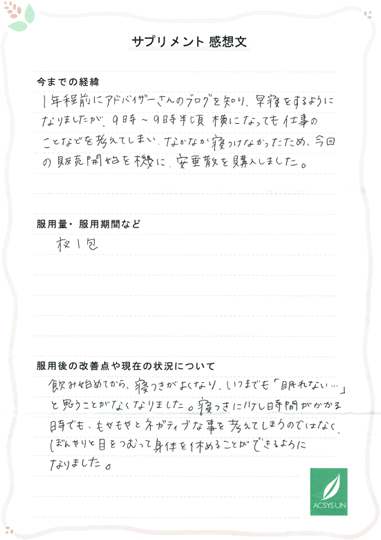 サプリメント 感想文
今までの経緯
1年程前にアドバイザーさんのブログを知り、早寝をするように
なりましたが、9時～9時半頃 横になっても仕事の
ことなどを考えてしまい、なかなか寝つけなかったため、今回
の販売開始を機に、安垂散を購入しました。
服用量・服用期間など
夜1包
服用後の改善点や現在の状況について
飲み始めてから、寝つきがよくなり、いつまでも「眠れない…」
と思うことがなくなりました。寝つきに少し時間がかかる
時でも、もやもやとネガティブな事を考えてしまうのではなく、
ぼんやりと目をつむって身体を休めることができるように
なりました。
ACSYS LIN